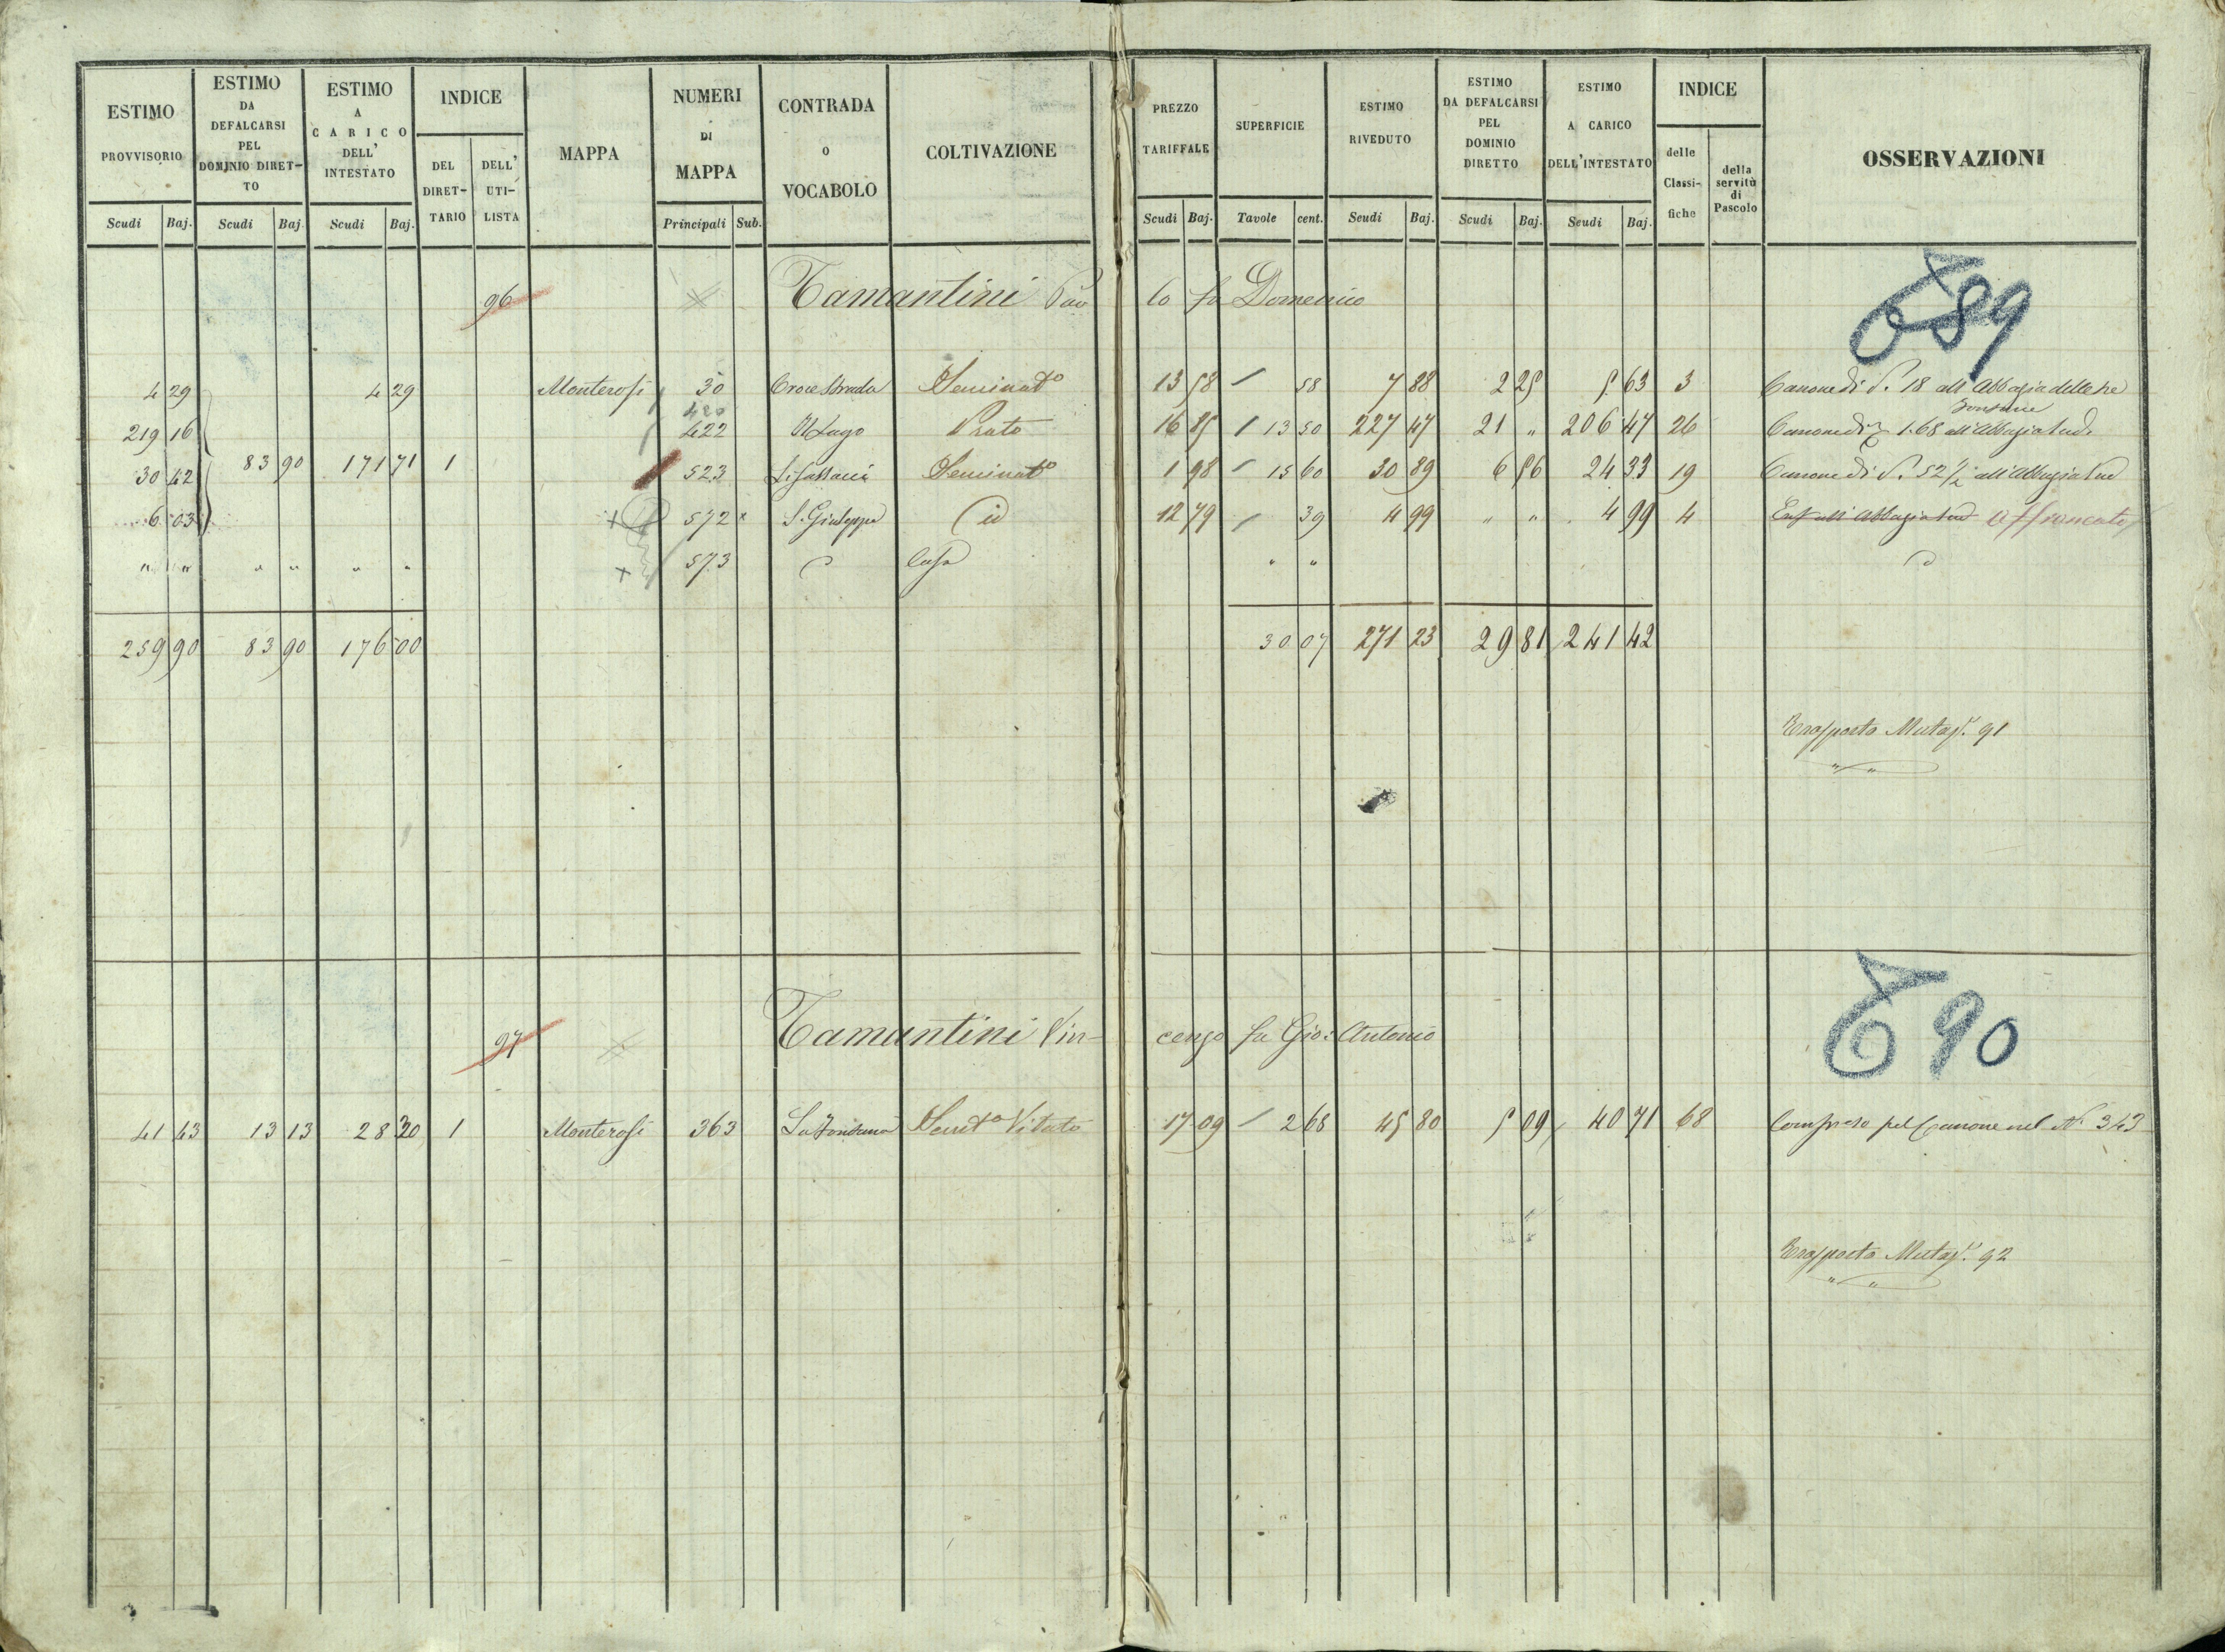 ESTIMO PROVVISORIO Scudi Baj.
ESTIMO DA DEFALCARSI PEL DOMINIO DIRETTO Scudi Baj.
ESTIMO A CARICO DELL' INTESTATO Scudi Baj.
INDICE DEL DIRET-TARIO DELL' UTI-LISTA
MAPPA
NUMERI DI MAPPA Principali Sub.
CONTRADA O VOCABOLO
COLTIVAZIONE
PREZZO TARIFFALE Scudi Baj.
SUPERFICIE Tavole cent.
ESTIMO RIVEDUTO Scudi Baj.
ESTIMO DA DEFALCARSI PEL DOMINIO DIRETTO Scudi Baj.
ESTIMO A CARICO DELL'INTESTATO Scudi Baj.
INDICE delle Classi-fiche della servitù di Pascolo
OSSERVAZIONI
96 Tamantini Pao lo fu Domenico 89
4 29 4 29 Monterosi 30 Croce Strada Seminato 13 58 58 7 88 2 25 5 63 3 Canone di S. 18 all Abbazia delle tre
Fontane
420
219 16 422 Il Lago Prato 16 85 13 50 227 47 21 " 206 47 26 Canone di 1.68 all'Abbazia sud.
30 42 83 90 171 71 1 523 Seminato 1 98 15 60 30 89 6 56 24 33 19 Canone di S. 52 1/2 all'Abbazia sud
6 03 572 S. Giuseppe id 12 79 39 4 99 " " 4 99 4 all'Abbazia sud affrancato
" " " " " " 573 Casa " "
259 90 83 90 176 00 30 07 271 23 29 81 241 42
Trasporto Mutaz. 91
97 Tamantini Vin- cenzo fu Gio: Antonio 90
41 43 13 13 28 30 1 Monterosi 363 La Fontana Semto Vitato 17 09 2 68 45 80 5 09 40 71 68 Compreso pel Canone nel N. 343
Trasporto Mutaz. 92